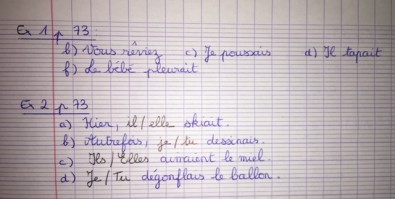 Ex 1 p 73
b) Vous rêviez c) Je poussais d) Il tapait
f) Le bébé pleurait
Ex 2 p 73
a) Hier, il / elle skiait.
b) Autrefois, je / tu dessinais.
c) Ils / Elles aimaient le miel.
d) Je / Tu dégonflais le ballon.